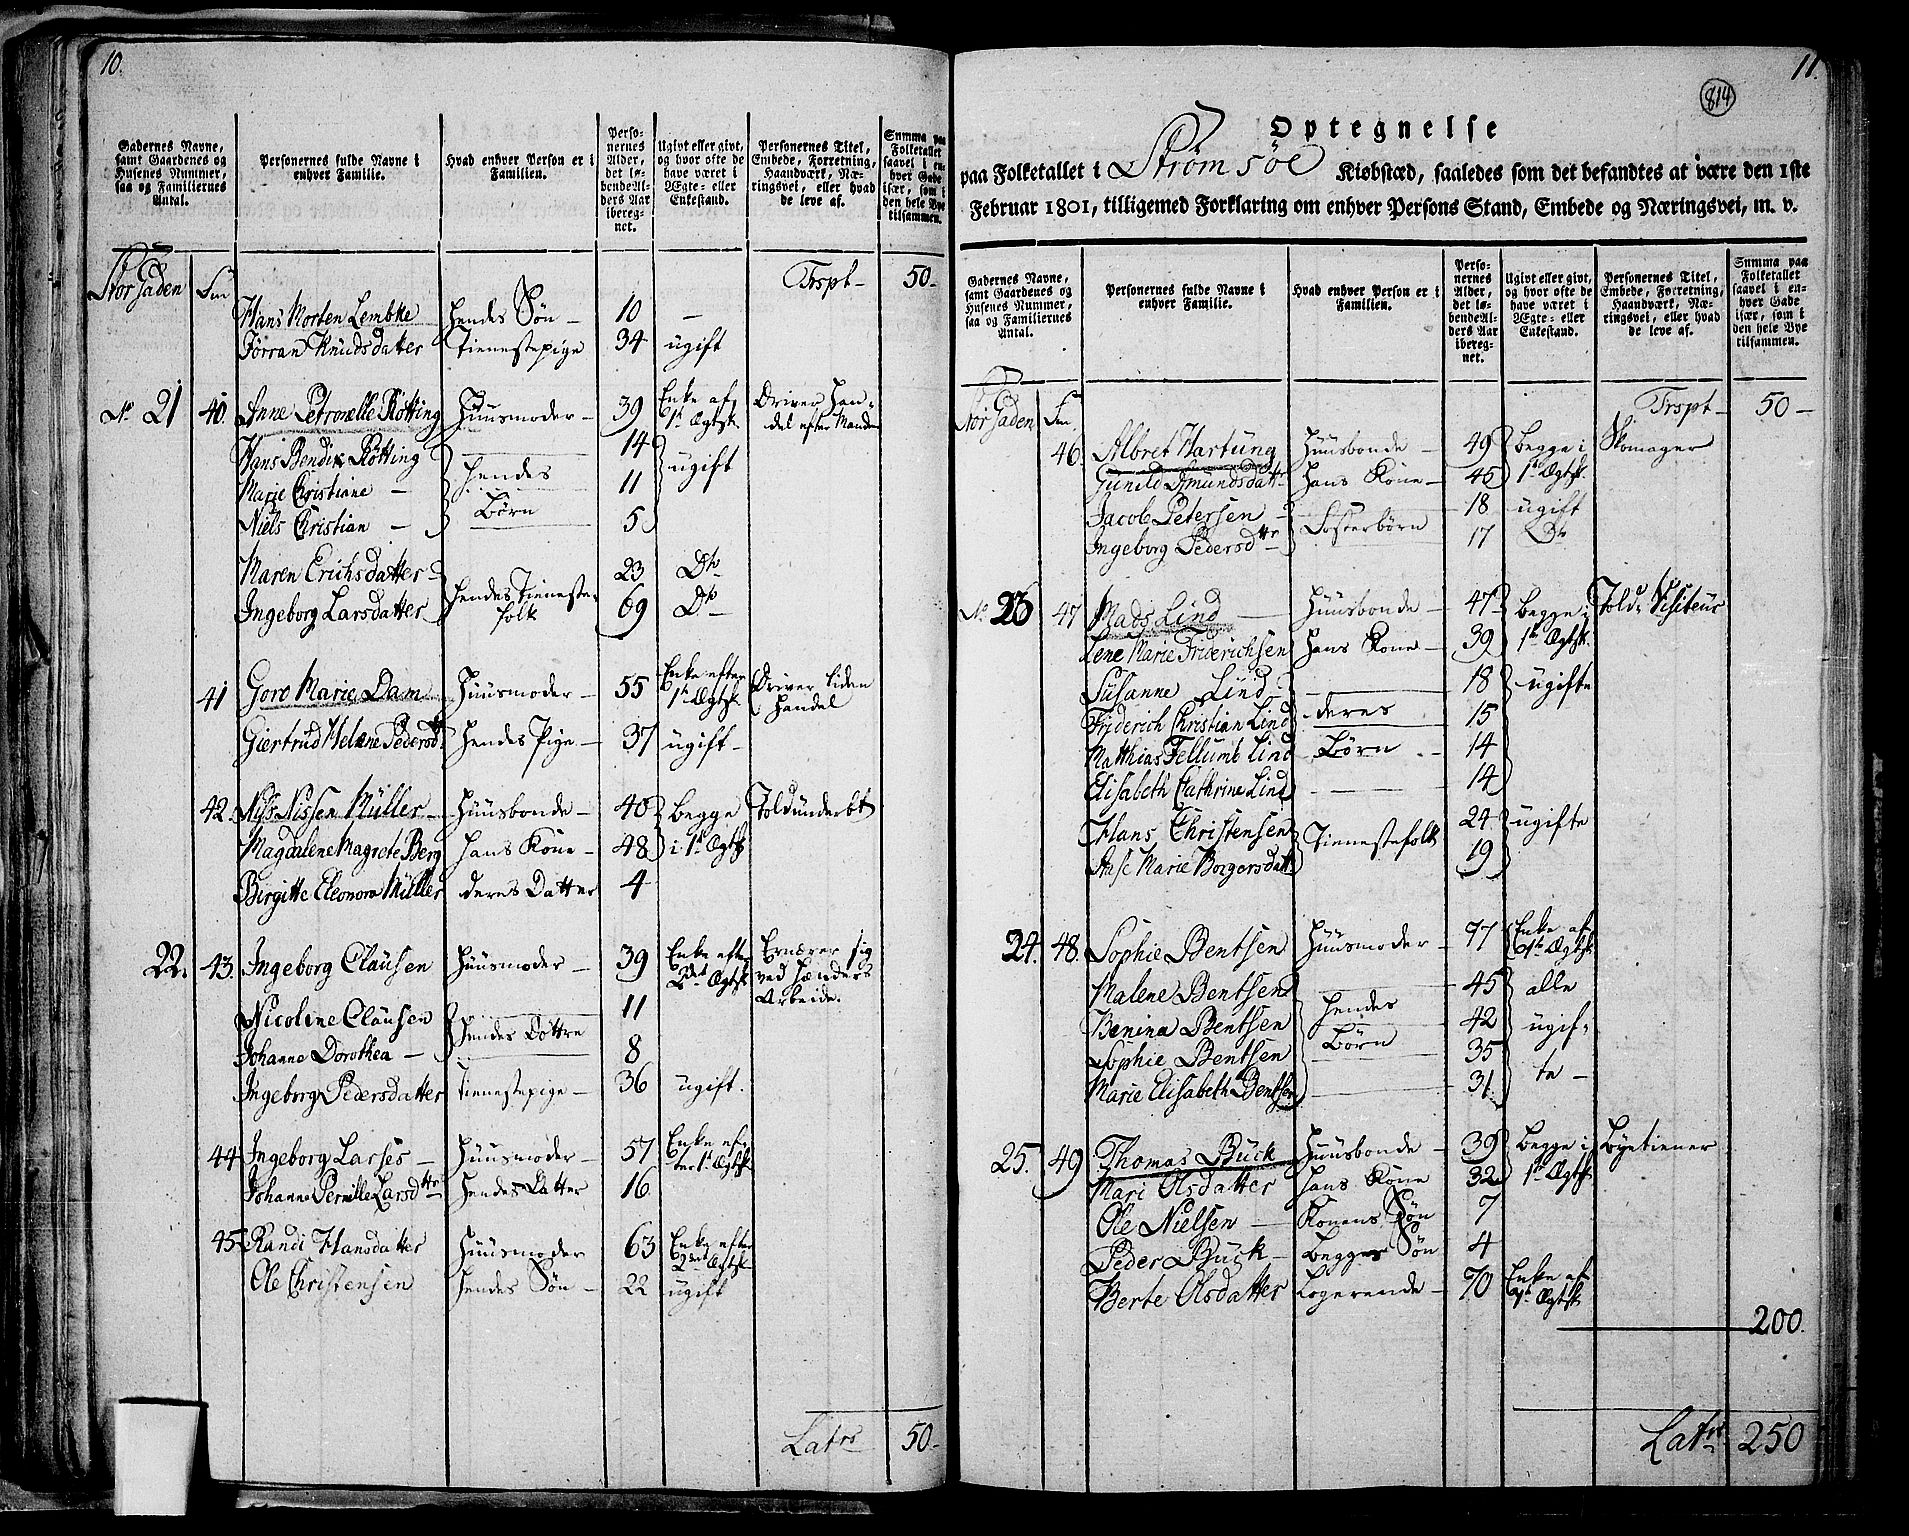 10.
Gadernes Navne, samt Gaardenes og Husenes Nummer, saa og Familiernes Antal.
Personernes fulde Navne i enhver Familie.
Hvad enhver Person er i Familien.
Personernes Alder, det løbende Alders Aar iberegnet.
Ugivt eller givt, og hvor ofte de have været i Ægte- eller Enkestand.
Personernes Titel, Embede, Forretning, Haandværk, Næringsvei, eller hvad de leve af.
Summa paa Folketallet saavel i enhver Gade især, som i den hele Bye tilsammen.
Stor Gaden Trspt 50-
Hans Morten Lembke hendes Søn - 10 -
Jørran Knudsdatter Tienestepige 34 ugift
No 21 40. Anne Petronelle Røtting Huusmoder - 39 Enke af 1ste Ægtsk. Driver Handel efter Manden
Hans Bendix Røtting 14
Marie Christiane - hendes Børn 11 ugift
Niels Christian - 5
Maren Erichsdatter 23 Do
Ingeborg Larsdatter hendes Tienestefolk 69 Do
41 Goro Marie Dam Huusmoder - 55 Enke efter 1te Ægtsk. Driver liden Handel
Giertrud Helene Pedersd. hendes Pige - 37 ugift -
42. Niss Nissen Müller Huusbonde - 40 begge Toldunderbt
Magdalene Magrete Berg hans Kone - 48 i 1te Ægtsk
Birgitte Eleonora Müller deres Datter 4
22. 43. Ingeborg Clausen Huusmoder - 39 Enke efter 2det Ægtsk Ernærer sig ved Hænders Arbeide.
Nicoline Clausen 11
Johanne Dorothea - hendes Døttre 8
Ingeborg Pedersdatter Tienestepige - 36 ugift.
44 Ingeborg Larses - Huusmoder - 57 Enke efter 1te Ægtsk
Johanne Pernille Larsdtr hendes Datter 16
45 Randi Hansdatter Huusmoder 63 Enke efter 2det Ægtsk
Ole Christensen hendes Søn - 22 ugift
Latrs 50-
11.
814
Optegnelse
paa Folketallet i Strømsøe Kiøbstæd, saaledes som det befandtes at være den 1ste
Februar 1801, tilligemed Forklaring om enhver Persons Stand, Embede og Næringsvei, m. v.
Gadernes Navne, samt Gaardenes og Husenes Nummer, saa og Familiernes Antal.
Personernes fulde Navne i enhver Familie.
Hvad enhver Person er i Familien.
Personernes Alder, det løbende Alders Aar iberegnet.
Ugivt eller givt, og hvor ofte de have været i Ægte- eller Enkestand.
Personernes Titel, Embede, Forretning, Haandværk, Næringsvei, eller hvad de leve af.
Summa paa Folketallet saavel i enhver Gade især, som i den hele Bye tilsammen.
Stor Gaden Trspt 50-
46. Albret Hartung Huusbonde 49 begge i Skomager
Gunild Amundsdatt. hans Kone - 45 1te Ægtsk.
Jacob Petersen 18 ugift
Ingeborg Pedersdtr Fosterbørn 17 Do
No 23 47 Mads Lind Huusbonde 47 begge i Told Visiteur
Lene Marie Friderichsen hans Kone - 39 1te Ægtsk.
Susanne Lind 18 ugifte
Friderich Christian Lind deres 15
Matthias Fellumb Lind Børn 14
Elisabeth Cathrine Lind 14
Hans Christensen 24 ugifte
Anse Marie Borgersdatt. Tienestefolk 19
24. 48. Sophie Bentsen Huusmoder 77 Enke af 1te Ægtsk
Malene Bentsen 45 alle
Benina Bentsen hendes 42 ugif-
Sophie Bentsen Børn 35
Marie Elisabeth Bentsen 31 te -
25. 49 Thomas Buck Huusbonde - 39 begge i Byetiener
Mari Olsdatter hans Kone 32 1te Ægtsk
Ole Nielsen - Konens Søn 7
Peder Buck - begges Søn 4
Berte Olsdatter Logerende - 70 Enke af 1te Ægtsk
200.
Latrs 250